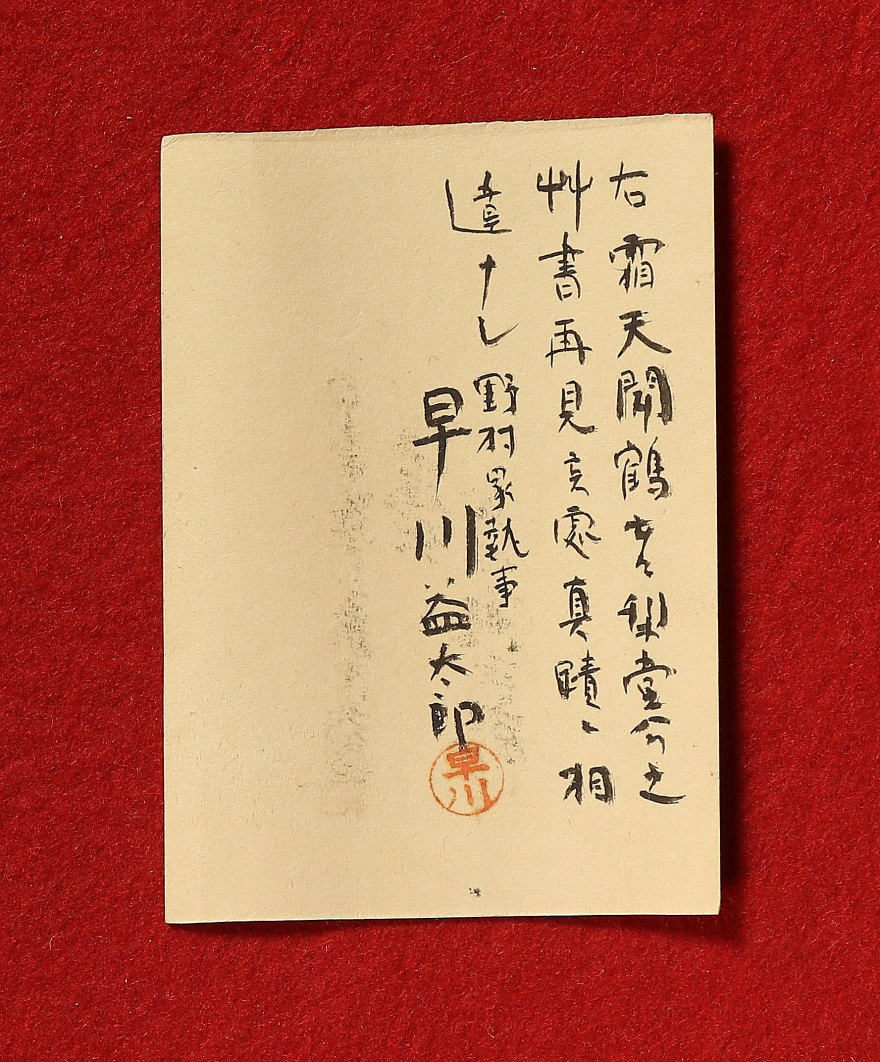 右霜天聞鶴者梨堂公之
艸書再見亥處真蹟ニ相
違ナシ
野村家執事
早川益太郎
早川